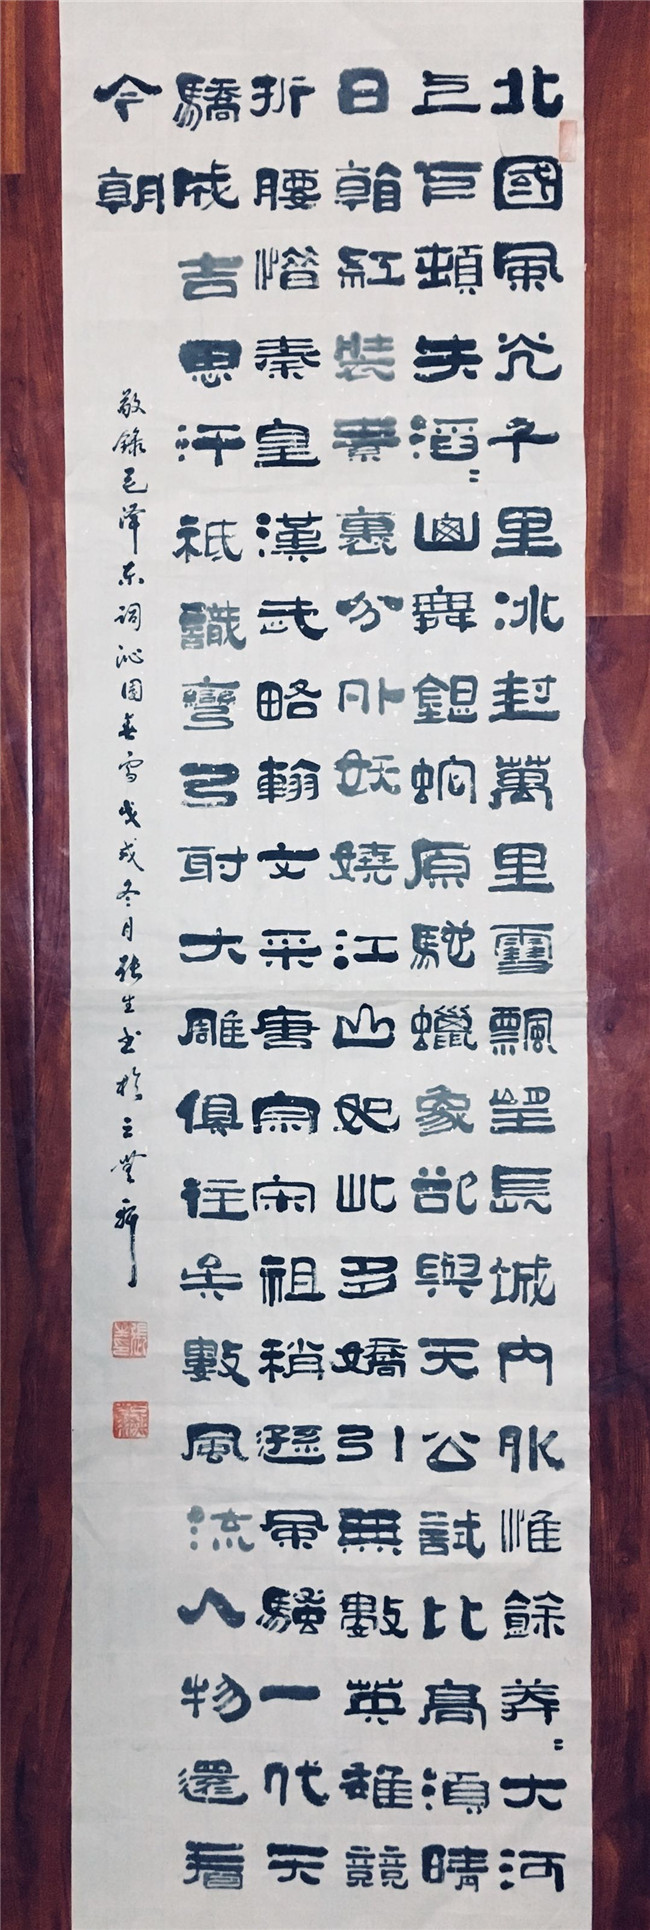 北國風光千里冰封萬里雪飄望長城內外惟餘莽〻大河
上下頓失滔〻山舞銀蛇原馳蠟象欲與天公試比高須晴
日看紅裝素裹分外妖嬈江山如此多嬌引無數英雄競
折腰惜秦皇漢武略輸文采唐宗宋祖稍遜風騷一代天
驕成吉思汗祇識彎弓射大雕俱往矣數風流人物還看
今朝
敬錄毛澤東詞沁園春雪戊戌冬月張生书於